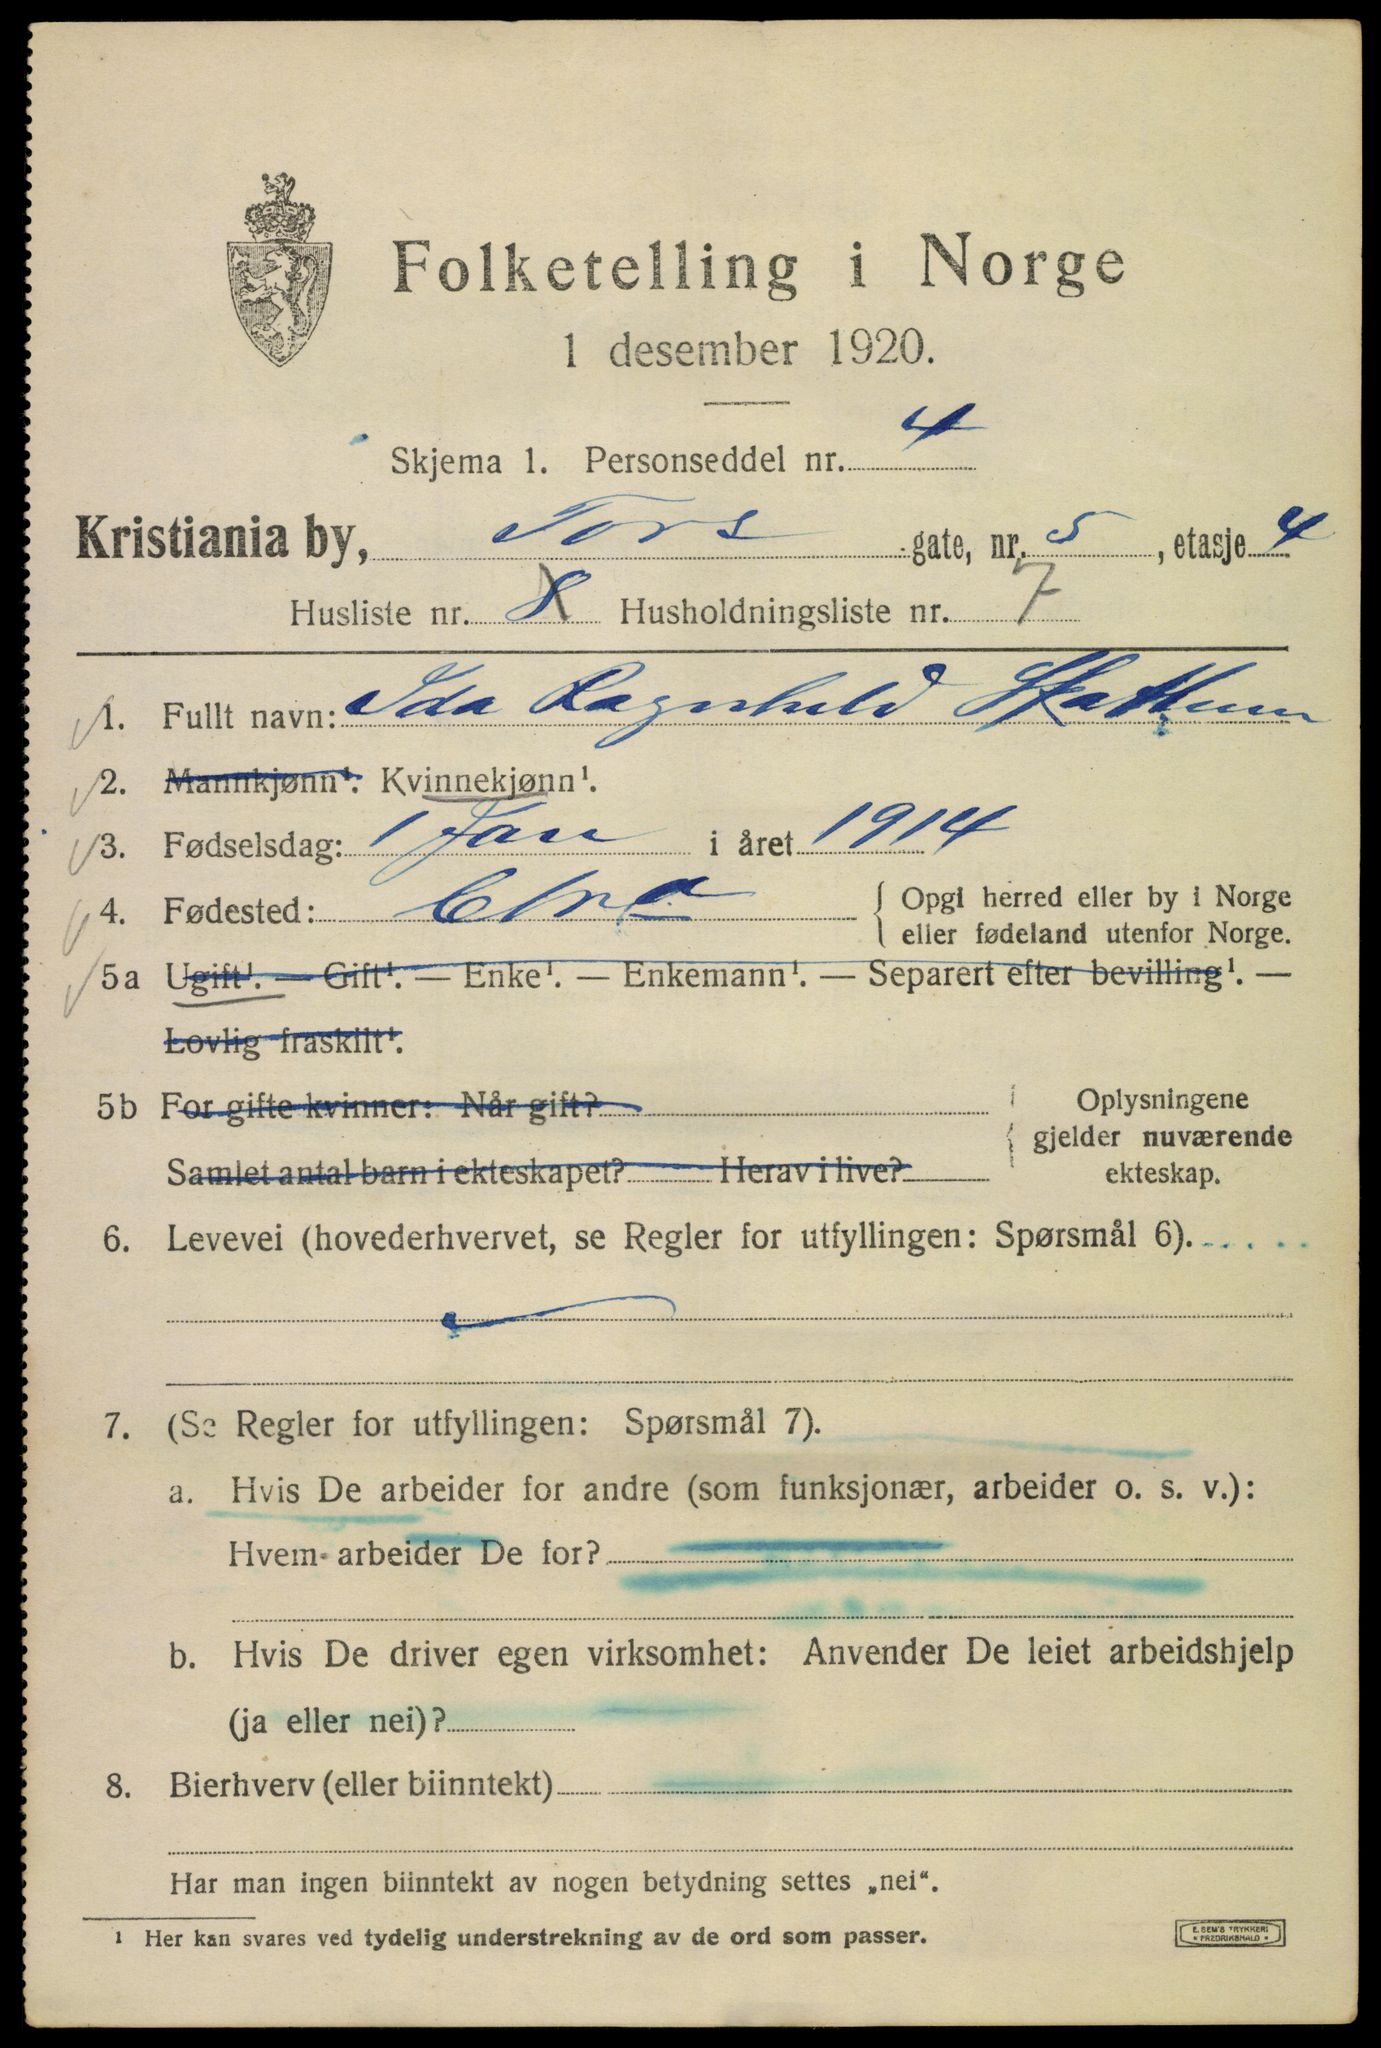 Folketelling i Norge
1 desember 1920.
Skjema 1. Personseddel nr. 4
Kristiania by, Tors gate, nr. 5, etasje 4
Husliste nr. 8 Husholdningsliste nr. 7
1. Fullt navn: Ida Ragnhild Skattum
2. Mannkjønn¹. Kvinnekjønn¹.
3. Fødselsdag: 1 Jan i året 1914
4. Fødested: Chra { Opgi herred eller by i Norge
eller fødeland utenfor Norge.
5a Ugift¹. — Gift¹. — Enke¹. — Enkemann¹. — Separert efter bevilling¹. —
Lovlig fraskilt¹.
5b For gifte kvinner: Når gift? Oplysningene
gjelder nuværende
Samlet antal barn i ekteskapet? Herav i live? ekteskap.
6. Levevei (hovederhvervet, se Regler for utfyllingen: Spørsmål 6).
7. (Se Regler for utfyllingen: Spørsmål 7).
a. Hvis De arbeider for andre (som funksjonær, arbeider o. s. v.):
Hvem arbeider De for?
b. Hvis De driver egen virksomhet: Anvender De leiet arbeidshjelp
(ja eller nei)?
8. Bierhverv (eller biinntekt)
Har man ingen biinntekt av nogen betydning settes „nei“.
¹ Her kan svares ved tydelig understrekning av de ord som passer.
E. SEM'S TRYKKERI
FREDRIKSHALD